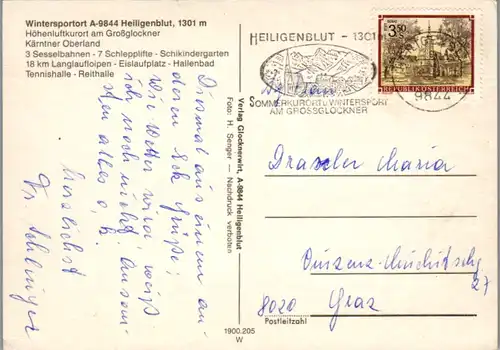 Wintersportort A-9844 Heiligenblut, 1301 m
Höhenluftkurort am Großglockner
Kärntner Oberland
3 Sesselbahnen - 7 Schlepplifte - Schikindergarten
18 km Langlaufloipen - Eislaufplatz - Hallenbad
Tennishalle - Reithalle
Diesmal aus einem an-
deren Eck Grüße;
wie Wetter wird, weiß
ich noch nicht. Ansons-
ten alles o. k.
Herzlichst
Verlag Glocknerwirt, A-9844 Heiligenblut
Foto: H. Senger — Nachdruck verboten
1900.205
W
HEILIGENBLUT - 1301
SOMMERKURORT U. WINTERSPORT
AM GROSSGLOCKNER
3.50
REPUBLIK ÖSTERREICH
9844
Draxler Maria
27
8020 Graz
Postleitzahl